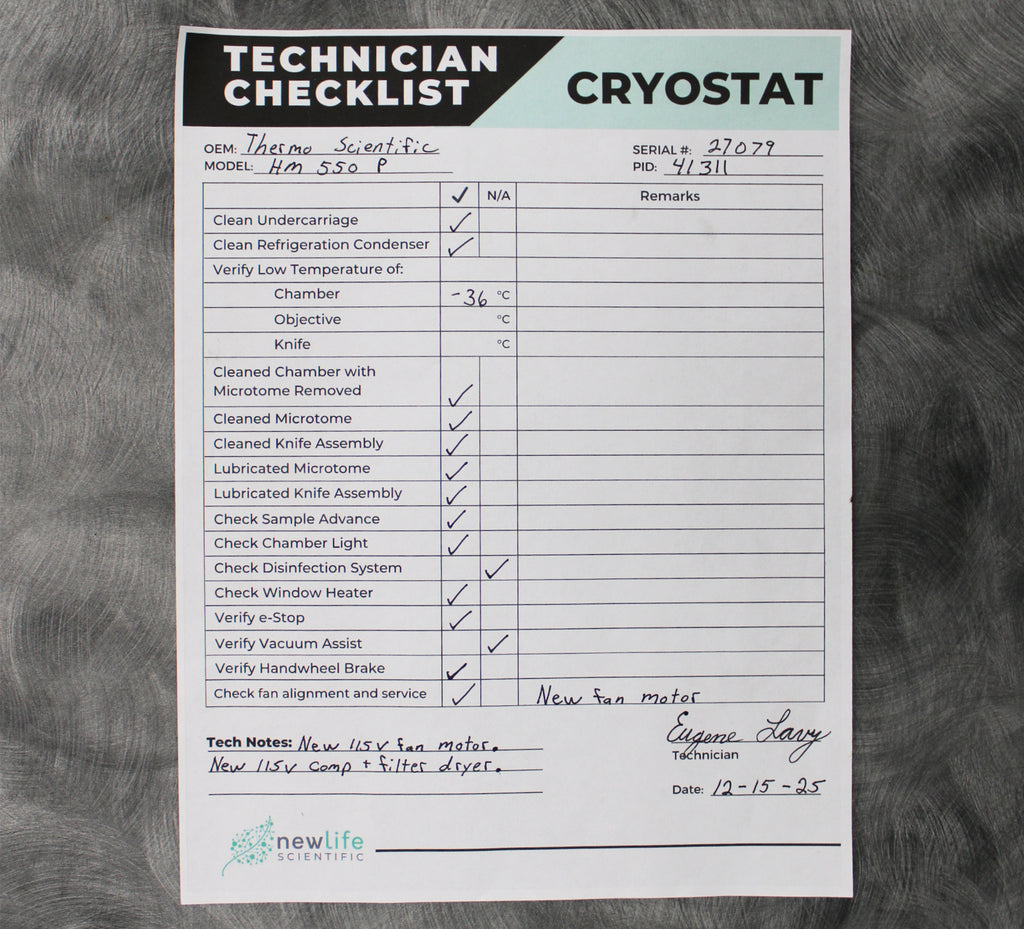 TECHNICIAN
CHECKLIST
CRYOSTAT
OEM: Thermo Scientific
SERIAL #: 27079
MODEL: HM 550 P
PID: 41311
✓ N/A Remarks
Clean Undercarriage ✓
Clean Refrigeration Condenser ✓
Verify Low Temperature of:
Chamber -36 °C
Objective °C
Knife °C
Cleaned Chamber with
Microtome Removed ✓
Cleaned Microtome ✓
Cleaned Knife Assembly ✓
Lubricated Microtome ✓
Lubricated Knife Assembly ✓
Check Sample Advance ✓
Check Chamber Light ✓
Check Disinfection System ✓
Check Window Heater ✓
Verify e-Stop ✓
Verify Vacuum Assist ✓
Verify Handwheel Brake ✓
Check fan alignment and service ✓ New fan motor
Tech Notes: New 115v fan motor.
New 115v comp + filter dryer.
Eugene Lavy
Technician
Date: 12-15-25
newlife
SCIENTIFIC